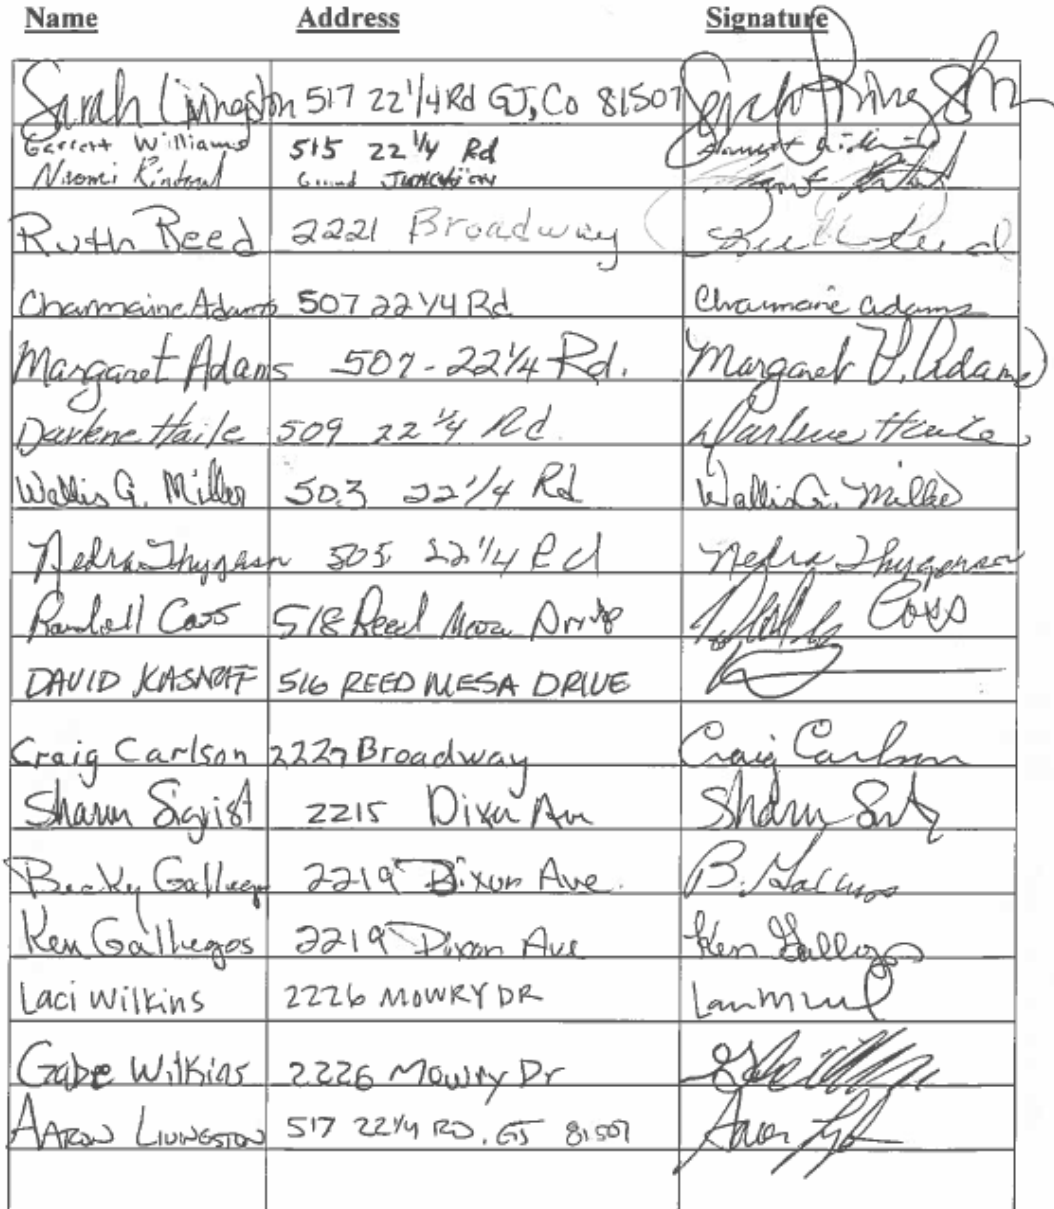 Name Address Signature
Sarah Livingston 517 22 1/4 Rd GJ, Co 81507 Sarah Livingston
Garrett Williams 515 22 1/4 Rd
Naomi Grand Junction
Ruth Reed 2221 Broadway Ruth Reed
Charmaine Adams 507 22 1/4 Rd Charmaine Adams
Margaret Adams 507 - 22 1/4 Rd. Margaret V. Adams
Darlene Haile 509 22 1/4 Rd Darlene Haile
Wallis G. Miller 503 22 1/4 Rd Wallis G. Miller
Nedra Thygerson 505 22 1/4 Rd Nedra Thygerson
Randall Coss 518 Reed Mesa Drive Coss
DAVID 516 REED MESA DRIVE
Craig Carlson 2227 Broadway Craig Carlson
Sharon Sigrist 2215 Dixon Ave Sharon
Becky Gallegos 2219 Dixon Ave. B. Gallegos
Ken Gallegos 2219 Dixon Ave Ken Gallegos
Laci Wilkins 2226 MOWRY DR
Gabe Wilkins 2226 Mowry Dr
AARON LIVINGSTON 517 22 1/4 RD. GJ 81507 Aaron